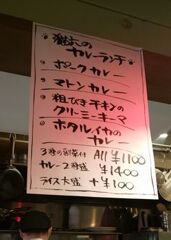 カレーランチ
ポークカレー
マトンカレー
粗びきチキンの
クリーミーキーマ
ホタルイカの
カレー
3種の副菜付 All ¥1100
カレー2種盛 ¥1400
ライス大盛 +¥100